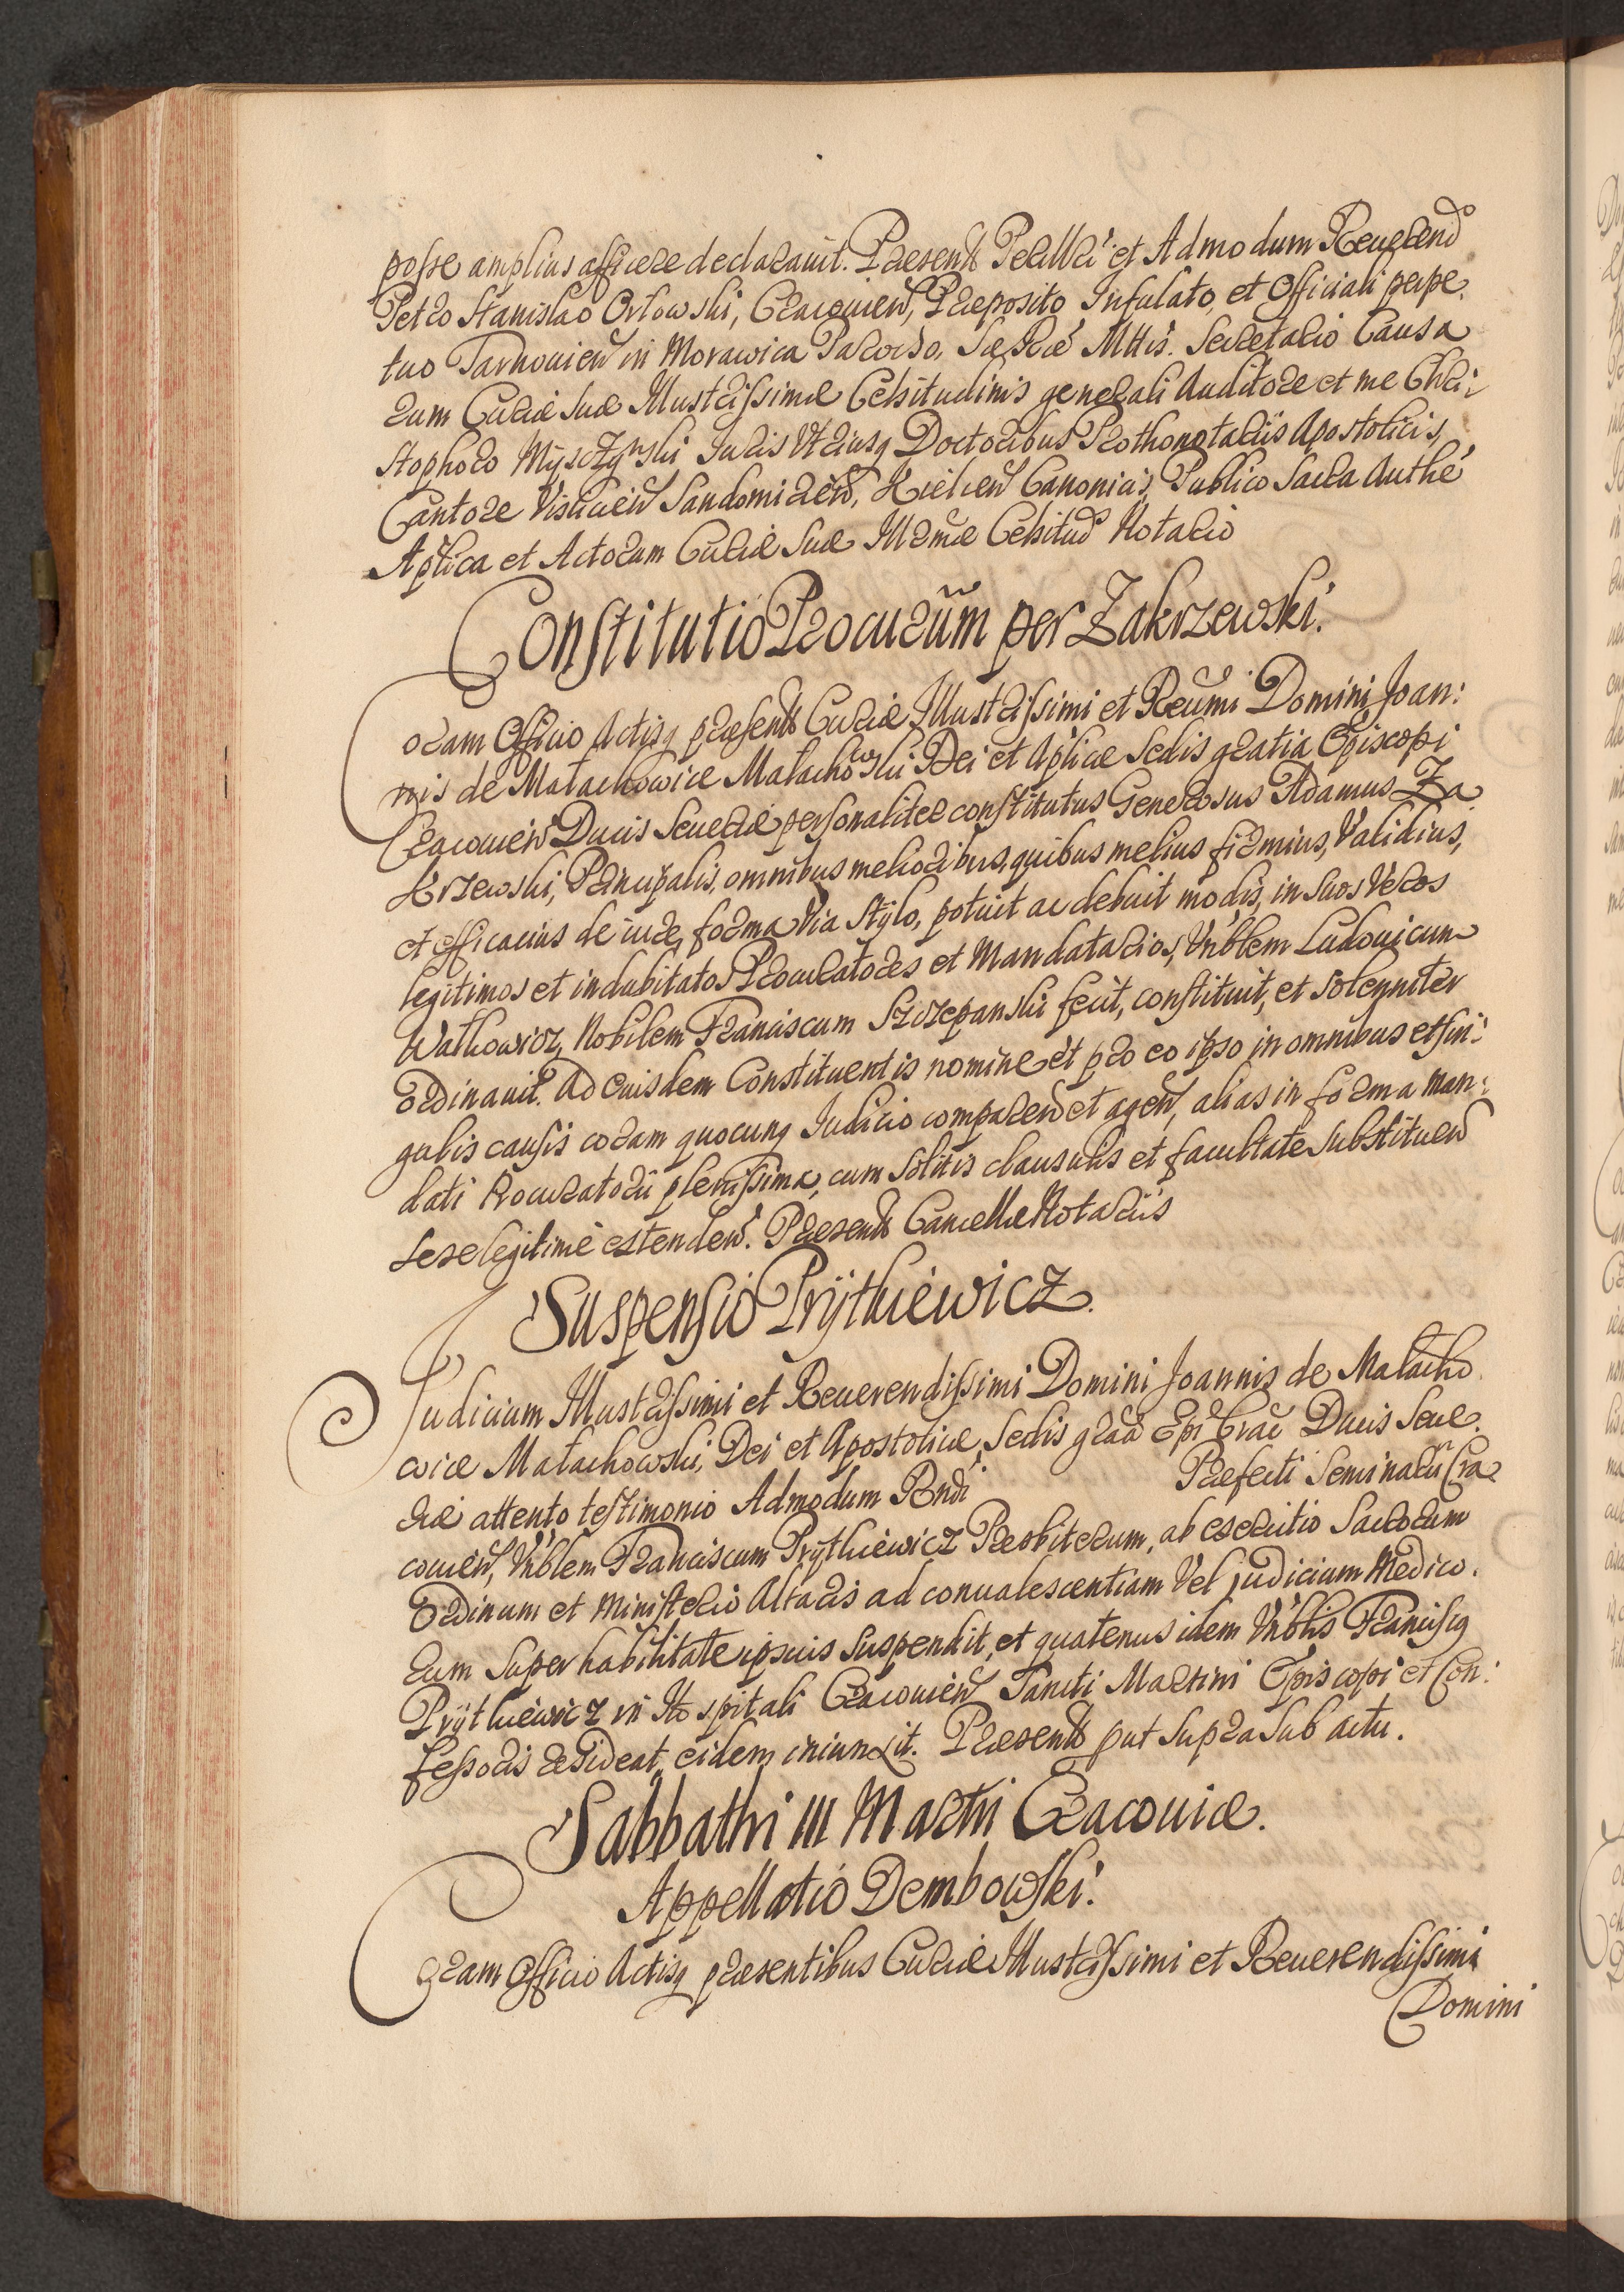 posse amplius afficere declarauit. Praesentt Perillri et Admodum Reuerend
Petro Stanislao Orłowski, Cracouien, Praeposito Infulato, et Officiali perpe:
tuo Tarnouien in Morawica Parocho, Sae Rae Mttis. Secretario Causa
rum Curiae Suae Illustrissimae Celsitudinis generali Auditore et me Chri:
stophoro Mysczynski Iuris Vtriusq Doctoribus Prothonotariis Apostolicis,
Cantore Vislicien Sandomirien, Kielcen Canonicis, Publico Sacra Authe
Aplica et Actorum Curiae Suae Illrmae Celsitud Notario
Constitutio Procurum per Zakrzewski.
Coram Officio Actisq praesentt Curiae Illustrissimi et Reumi Domini Joan:
nis de Małachowice Małachowski Dei et Aplicae Sedis gratia Episcopi
Cracouien Ducis Seueriae personaliter constitutus Generosus Adamus Za
Krzewski, Principalis, omnibus melioribus, quibus melius firmius, Validius,
et efficacius de iure, forma Via Stylo, potuit ac debuit modis, in suos Veros
legitimos et indubitatos Procuratores et Mandatarios, Vnblem Ludouicum
Watkowicz, Nobilem Franciscum Szczepanski fecit, constituit, et solenniter
ordinauit. Ad Cuisdem Constituentis nomine et pro eo ipso in omnibus et sin:
gulis causis coram quocunq Iudicio comparen et agen, alias in forma man:
dati Procuratorii plenissima, cum solitis clausulis et facultate substituen
sese legitimè extenden. Praesentt Cancellae Notariis
Suspensio Prytkiewicz.
Judicium Illustrissimi et Reuerendissimi Domini Joannis de Małacho
wice Małachowski, Dei et Apostolicae Sedis graa Epi Crac Ducis Seue:
riae attento testimonio Admodum Rndi Praefecti Seminarii Cra
couien, Vnblem Franciscum Prytkiewicz Praesbiterum, ab exercitio Sacrorum
Ordinum et ministerio Altaris ad conualescentiam Vel judicium Medico:
rum super habilitate ipsius suspendit, et quatenus idem Vnblis Franciscq
Prytkiewicz in Hospitali Cracouien Sancti Martini Episcopi et Con:
fessoris resideat, eidem iniunxit. Praesentt put supra sub actu.
Sabbathi III Martii Cracouiae.
Appellatio Dembowski.
Coram Officio Actisq praesentibus Curiae Illustrissimi et Reuerendissimi
Domini